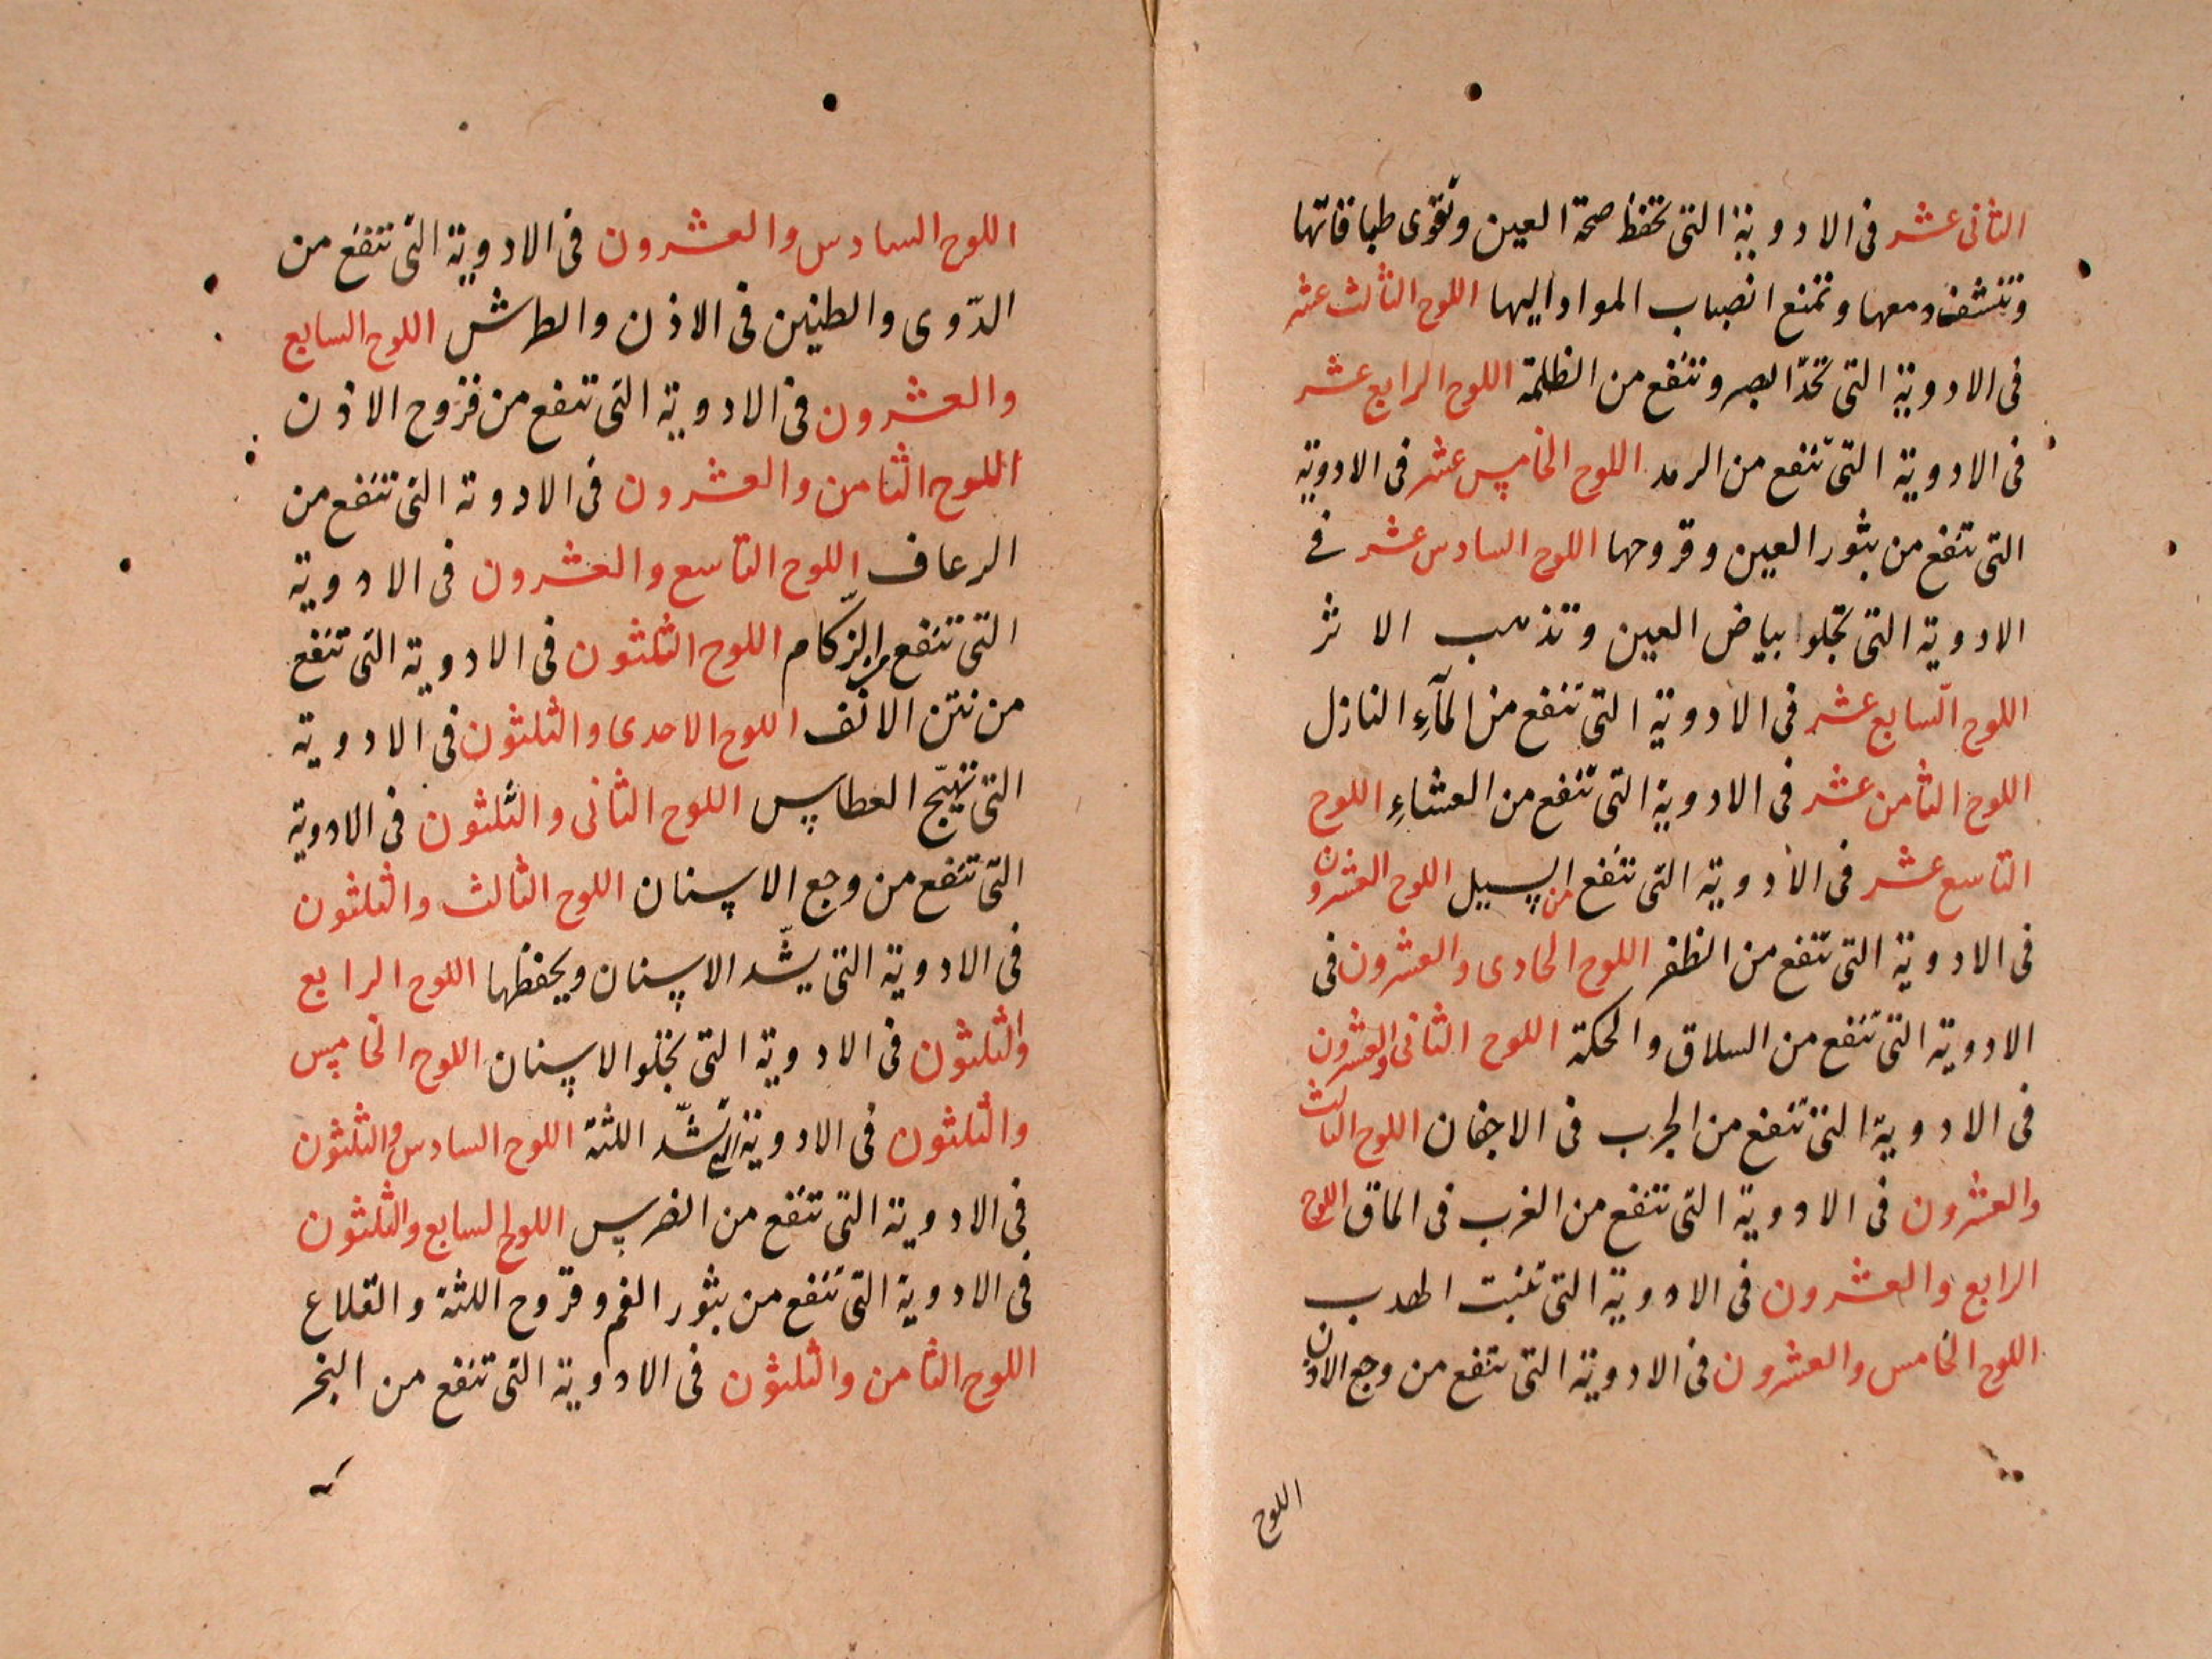 الثانى عشر فى الادوية التى تحفظ صحة العين وتقوى طباقاتها
وتنشف دمعها وتمنع انصباب المواد اليها اللوح الثالث عشر
فى الادوية التى تحدّ البصر وتنفع من الظلمة اللوح الرابع عشر
فى الادوية التى تنفع من الرمد اللوح الخامس عشر فى الادوية
التى تنفع من بثور العين وقروحها اللوح السادس عشر فى
الادوية التى تجلوا بياض العين وتذهب الاثر
اللوح السّابع عشر فى الادوية التى تنفع من المآءِ النازل
اللوح الثامن عشر فى الادوية التى تنفع من العشاءِ اللوح
التاسع عشر فى الادوية التى تنفع من السبل اللوح العشرون
فى الادوية التى تنفع من الظفر اللوح الحادى والعشرون فى
الادوية التى تنفع من السلاق والحكة اللوح الثانى والعشرون
فى الادوية التى تنفع من الجرب فى الاجفان اللوح الثالث
والعشرون فى الادوية التى تنفع من الغرب فى الماق اللوح
الرابع والعشرون فى الادوية التى تنبت الهدب
اللوح الخامس والعشرون فى الادوية التى تنفع من وجع الاذن
اللوح
اللوح السادس والعشرون فى الادوية التى تنفع من
الدّوى والطنين فى الاذن والطرش اللوح السابع
والعشرون فى الادوية التى تنفع من قروح الاذن
اللوح الثامن والعشرون فى الادوية التى تنفع من
الرعاف اللوح التاسع والعشرون فى الادوية
التى تنفع من الزكام اللوح الثلثون فى الادوية التى تنفع
من نتن الانف اللوح الاحدى والثلثون فى الادوية
التى تهيّج العطاس اللوح الثانى والثلثون فى الادوية
التى تنفع من وجع الاسنان اللوح الثالث والثلثون
فى الادوية التى يشّد الاسنان ويحفظها اللوح الرابع
والثلثون فى الادوية التى تجلوا الاسنان اللوح الخامس
والثلثون فى الادوية التى تشّد اللثة اللوح السادس والثلثون
فى الادوية التى تنفع من الضرس اللوح السابع والثلثون
فى الادوية التى تنفع من بثور الفم وقروح اللثة والقلاع
اللوح الثامن والثلثون فى الادوية التى تنفع من البخر